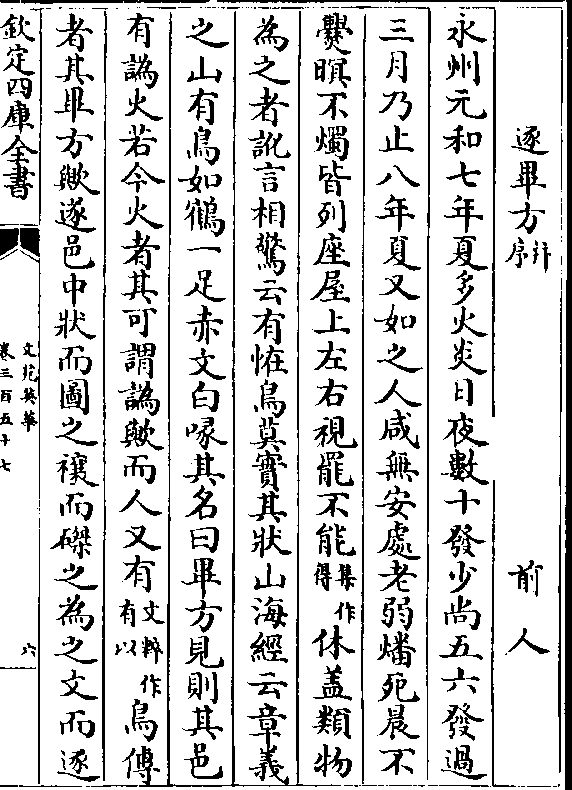 逐畢方并序　前人
永州元和七年夏多火炎日夜數十發少尚五六發過
三月乃止八年夏又如之人咸無安處老弱燔死晨不
爨暝不燭皆列座屋上左右視罷不能集作得休盖類物
為之者訛言相驚云有怪鳥莫實其狀山海經云章義
之山有鳥如鶴一足赤文白喙其名曰畢方見則其邑
有譌火若今火者其可謂譌歟而人又有文粹作有以鳥傳
者其畢方歟遂邑中狀而圖之禳而磔之為之文而逐
欽定四庫全書
文苑英華
卷三百五十七
六